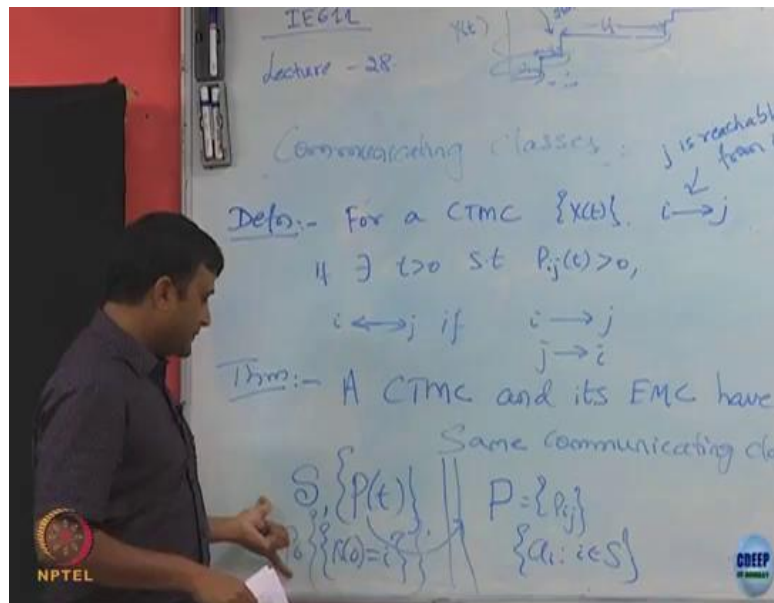 IE611
X(t)
Lecture - 28
Communicating classes :
j is reachabl
from
Defn:- For a CTMC {X(t)}. i → j
if ∃ t>0 s.t Pij(t)>0,
i ↔ j if i → j
j → i
Thm:- A CTMC and its EMC have
Same communicating cla
S, {P(t)} P = {Pij}
{X(0)=i} {ai : i∈S}
NPTEL
CDEEP
IIT BOMBAY